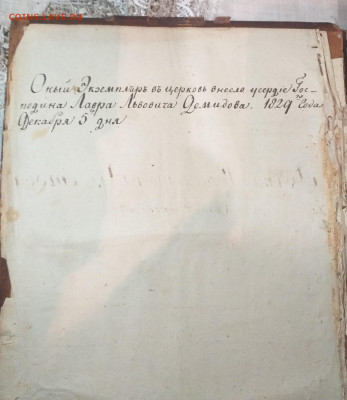 Оный Экземпляръ въ церковь внесло усердіе Гос-
подина Лавра Львовича Демидова. 1829го Года
Декабря 5 дня